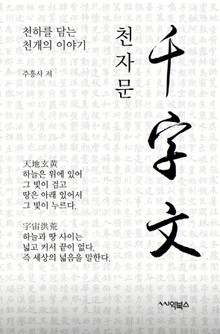 천하를 담는
천개의 이야기
주흥사 저
천자문
千字文
天地玄黃
하늘은 위에 있어
그 빛이 검고
땅은 아래 있어서
그 빛이 누르다.
宇宙洪荒
하늘과 땅 사이는
넓고 커서 끝이 없다.
즉 세상의 넓음을 말한다.